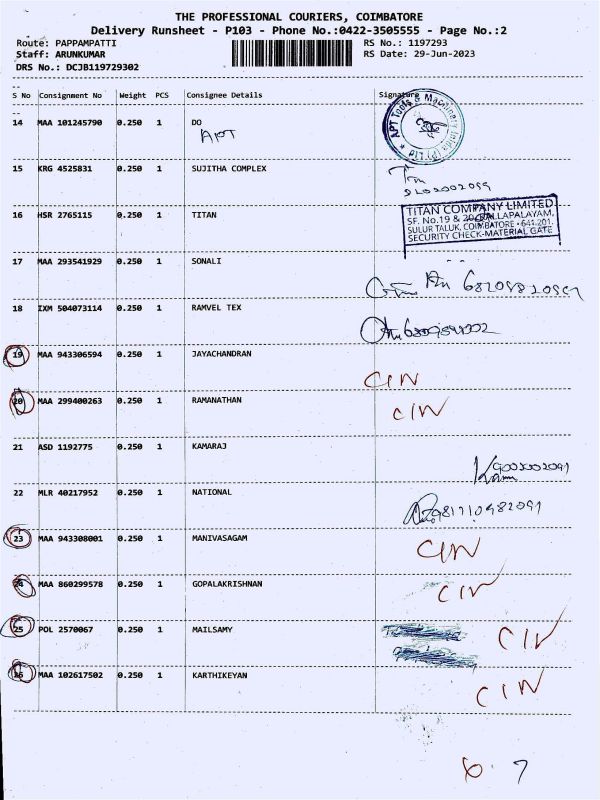 THE PROFESSIONAL COURIERS, COIMBATORE
Delivery Runsheet - P103 - Phone No.:0422-3505555 - Page No.:2
Route: PAPPAMPATTI RS No.: 1197293
Staff: ARUNKUMAR RS Date: 29-Jun-2023
DRS No.: DCJB119729302
S No Consignment No Weight PCS Consignee Details Signature
14 MAA 101245790 0.250 1 DO
APT
APT Tools & Machinery India (P) Ltd
15 KRG 4525831 0.250 1 SUJITHA COMPLEX
16 HSR 2765115 0.250 1 TITAN
TITAN COMPANY LIMITED
SF. No.19 & 20,
SULUR TALUK, COIMBATORE - 641 201.
SECURITY CHECK-MATERIAL GATE
17 MAA 293541929 0.250 1 SONALI
18 IXM 504073114 0.250 1 RAMVEL TEX
19 MAA 943306594 0.250 1 JAYACHANDRAN
CIN
20 MAA 299400263 0.250 1 RAMANATHAN
CIN
21 ASD 1192775 0.250 1 KAMARAJ
22 MLR 40217952 0.250 1 NATIONAL
23 MAA 943308001 0.250 1 MANIVASAGAM
CIN
24 MAA 860299578 0.250 1 GOPALAKRISHNAN
CIN
25 POL 2570067 0.250 1 MAILSAMY
CIN
26 MAA 102617502 0.250 1 KARTHIKEYAN
CIN
7